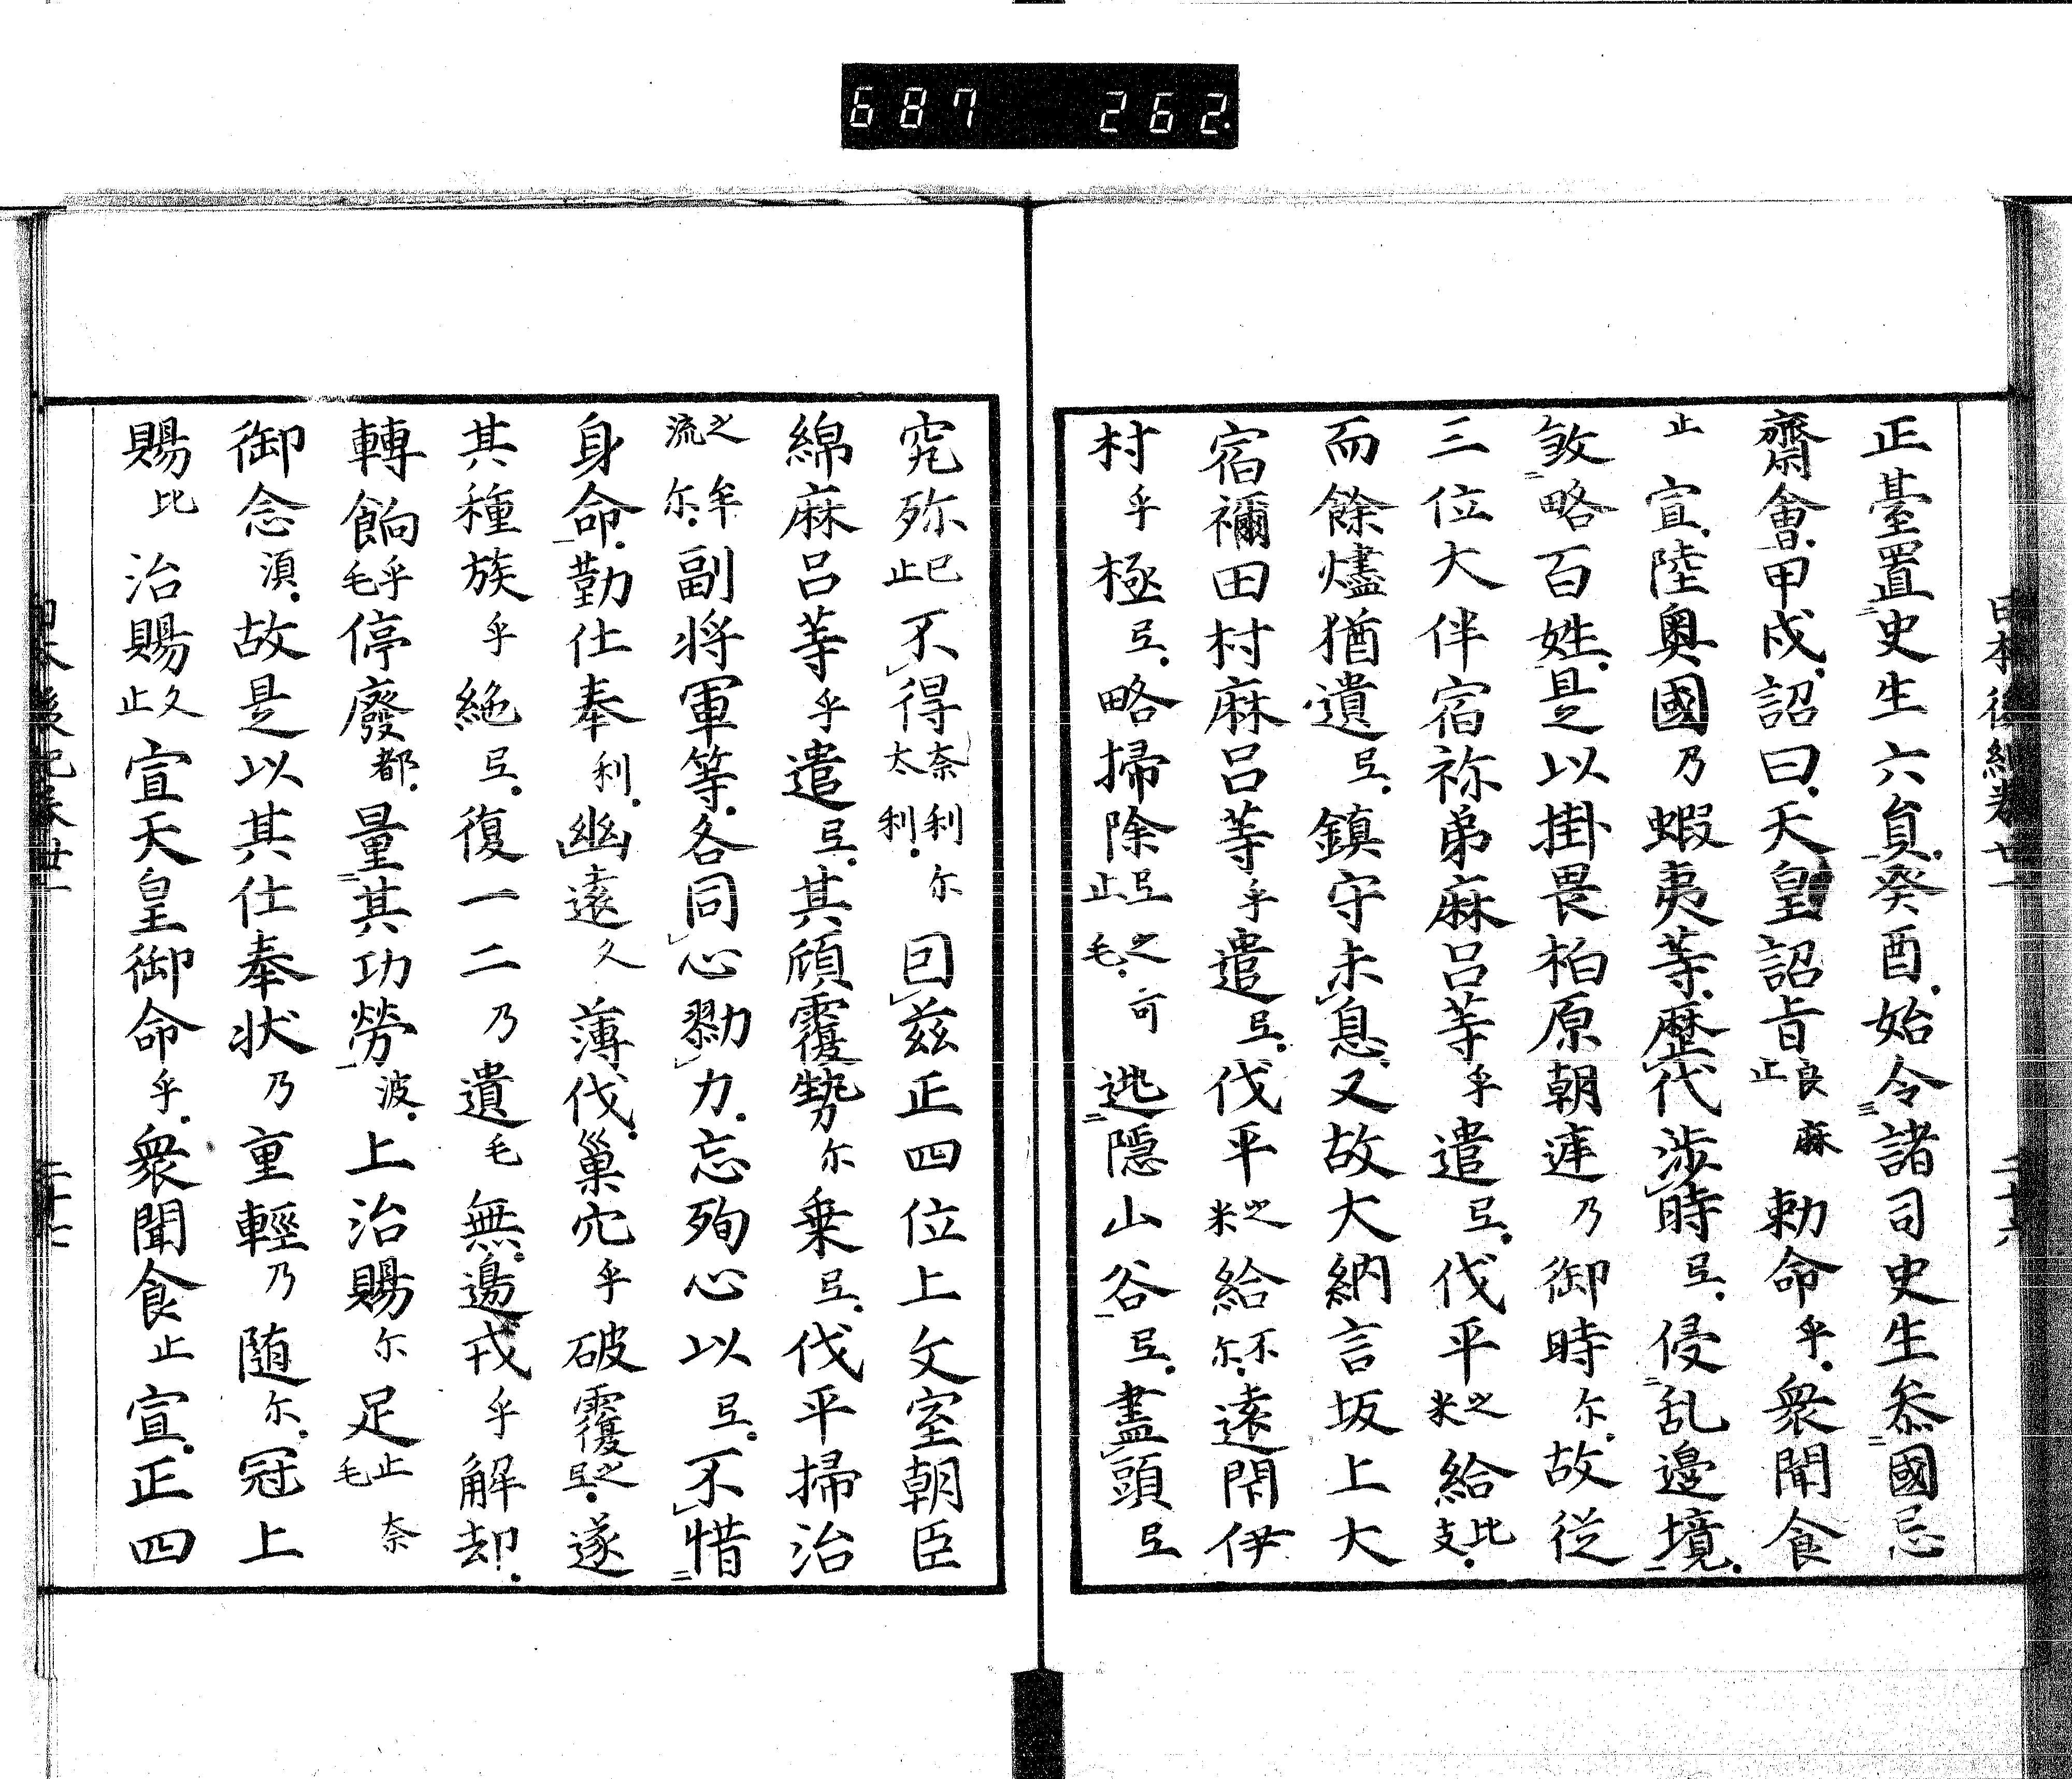 687 262
日本後紀卷廿一 二十六
正臺置史生六員癸酉始令諸司史生忝國忌
齋會甲戌詔曰天皇詔旨良麻止勅命乎衆聞食
止宣陸奥國乃蝦夷等歴代渉時弖侵乱邊境
敓略百姓是以掛畏柏原朝迋乃御時尓故從
三位大伴宿祢弟麻呂等乎遣弖伐平之米給比支
而餘燼猶遺弖鎮守未息又故大納言坂上大
宿禰田村麻呂等乎遣弖伐平之米給不尓遠閇伊
村乎極弖略掃除弖之止毛可逃隱山谷弖盡頭弖
究殄己止不得奈利太利尓回兹正四位上文室朝臣
綿麻呂等乎遣弖其頎覆勢尓乗弖伐平掃治
之牟流尓副将軍等各同心勠力忘殉心以弖不惜
身命勤仕奉利幽遠久薄伐巢穴乎破覆之弖遂
其種族乎絶弖復一二乃遺毛無邊戎乎解却
轉餉乎毛停廢都量其功勞波上治賜尓足止奈毛
御念湏故是以其仕奉状乃重輕乃随尓冠上
賜比治賜久止宣天皇御命乎衆聞食止宣正四
日本後紀卷廿一 二十七